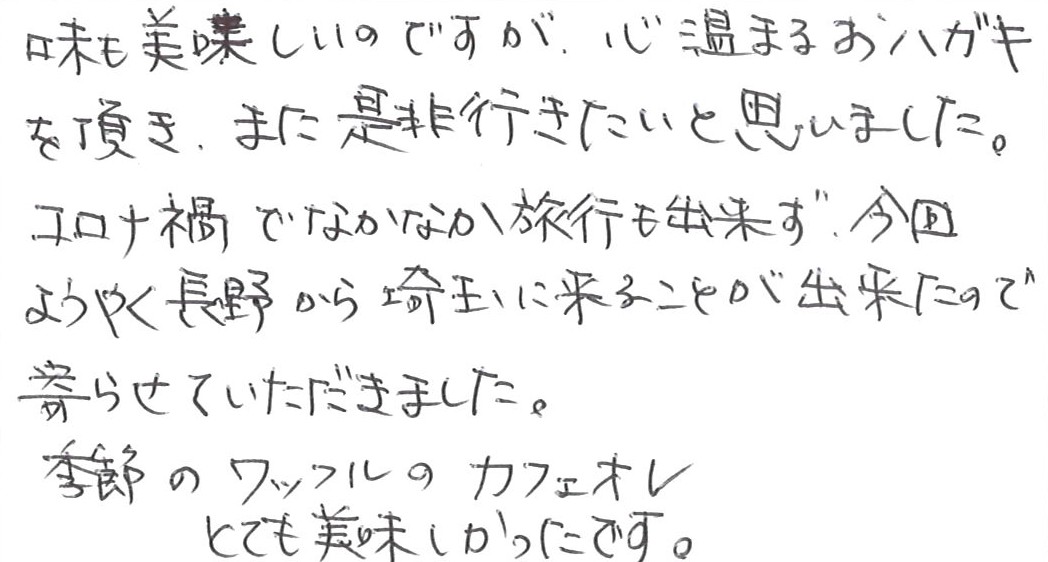 味も美味しいのですが、心温まるおハガキ
を頂き、また是非行きたいと思いました。
コロナ禍でなかなか旅行も出来ず、今回
ようやく長野から埼玉に来ることが出来たので
寄らせていただきました。
季節のワッフルのカフェオレ
とても美味しかったです。